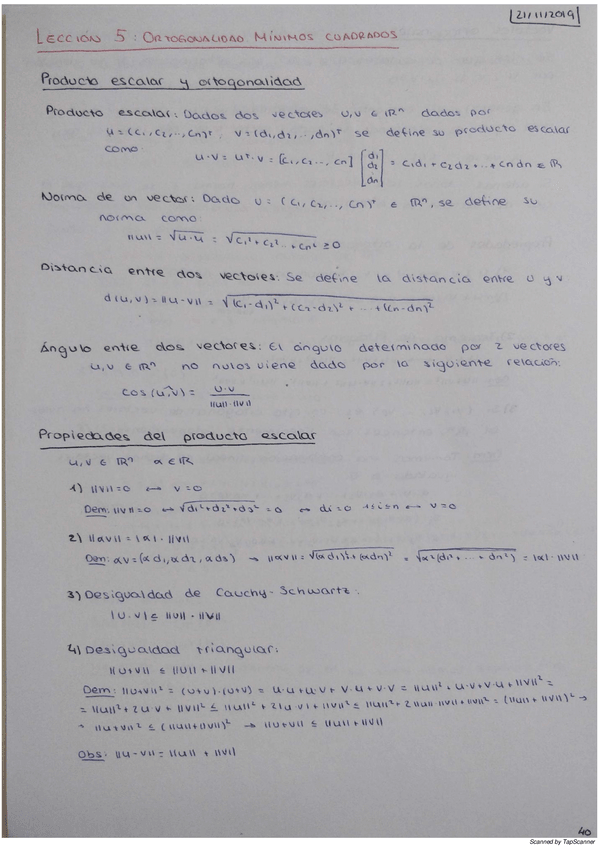 21/11/2019
LECCIÓN 5: ORTOGONALIDAD MÍNIMOS CUADRADOS
Producto escalar y ortogonalidad
Producto escalar: Dados dos vectores u,v ∈ ℝⁿ dados por
u = (c₁, c₂, .., cn)ᵀ, v = (d₁, d₂, .., dn)ᵀ se define su producto escalar
como
u·v = uᵀ·v = [c₁, c₂ ..., cn] [d₁ d₂ ⋮ dn] = c₁d₁ + c₂d₂ + ... + cndn ∈ ℝ
Norma de un vector: Dado u = (c₁, c₂, .., cn)ᵀ ∈ ℝⁿ, se define su
norma como:
||u|| = √(u·u) = √(c₁² + c₂² ... + cn²) ≥ 0
Distancia entre dos vectores: Se define la distancia entre u y v
d(u,v) = ||u-v|| = √((c₁-d₁)² + (c₂-d₂)² + ... + (cn-dn)²)
Ángulo entre dos vectores: El ángulo determinado por 2 vectores
u,v ∈ ℝⁿ no nulos viene dado por la siguiente relación:
cos(u,v) = u·v / ||u||·||v||
Propiedades del producto escalar
u,v ∈ ℝⁿ α ∈ ℝ
1) ||v|| = 0 ↔ v = 0
Dem: ||v|| = 0 ↔ √(d₁² + d₂² + d₃²) = 0 ↔ di = 0 1≤i≤n ↔ v = 0
2) ||αv|| = |α|·||v||
Dem: αv = (αd₁, αd₂, αd₃) → ||αv|| = √((αd₁)² + (αdn)²) = √(α²(d₁² + ... + dn²)) = |α|·||v||
3) Desigualdad de Cauchy-Schwartz:
|u·v| ≤ ||u||·||v||
4) Desigualdad triangular:
||u+v|| ≤ ||u|| + ||v||
Dem: ||u+v||² = (u+v)·(u+v) = u·u + u·v + v·u + v·v = ||u||² + u·v + v·u + ||v||² =
= ||u||² + 2u·v + ||v||² ≤ ||u||² + 2|u·v| + ||v||² ≤ ||u||² + 2||u||·||v|| + ||v||² = (||u|| + ||v||)² →
→ ||u+v||² ≤ (||u||+||v||)² → ||u+v|| ≤ ||u|| + ||v||
Obs: ||u-v|| = ||u|| + ||v||
40
Scanned by TapScanner